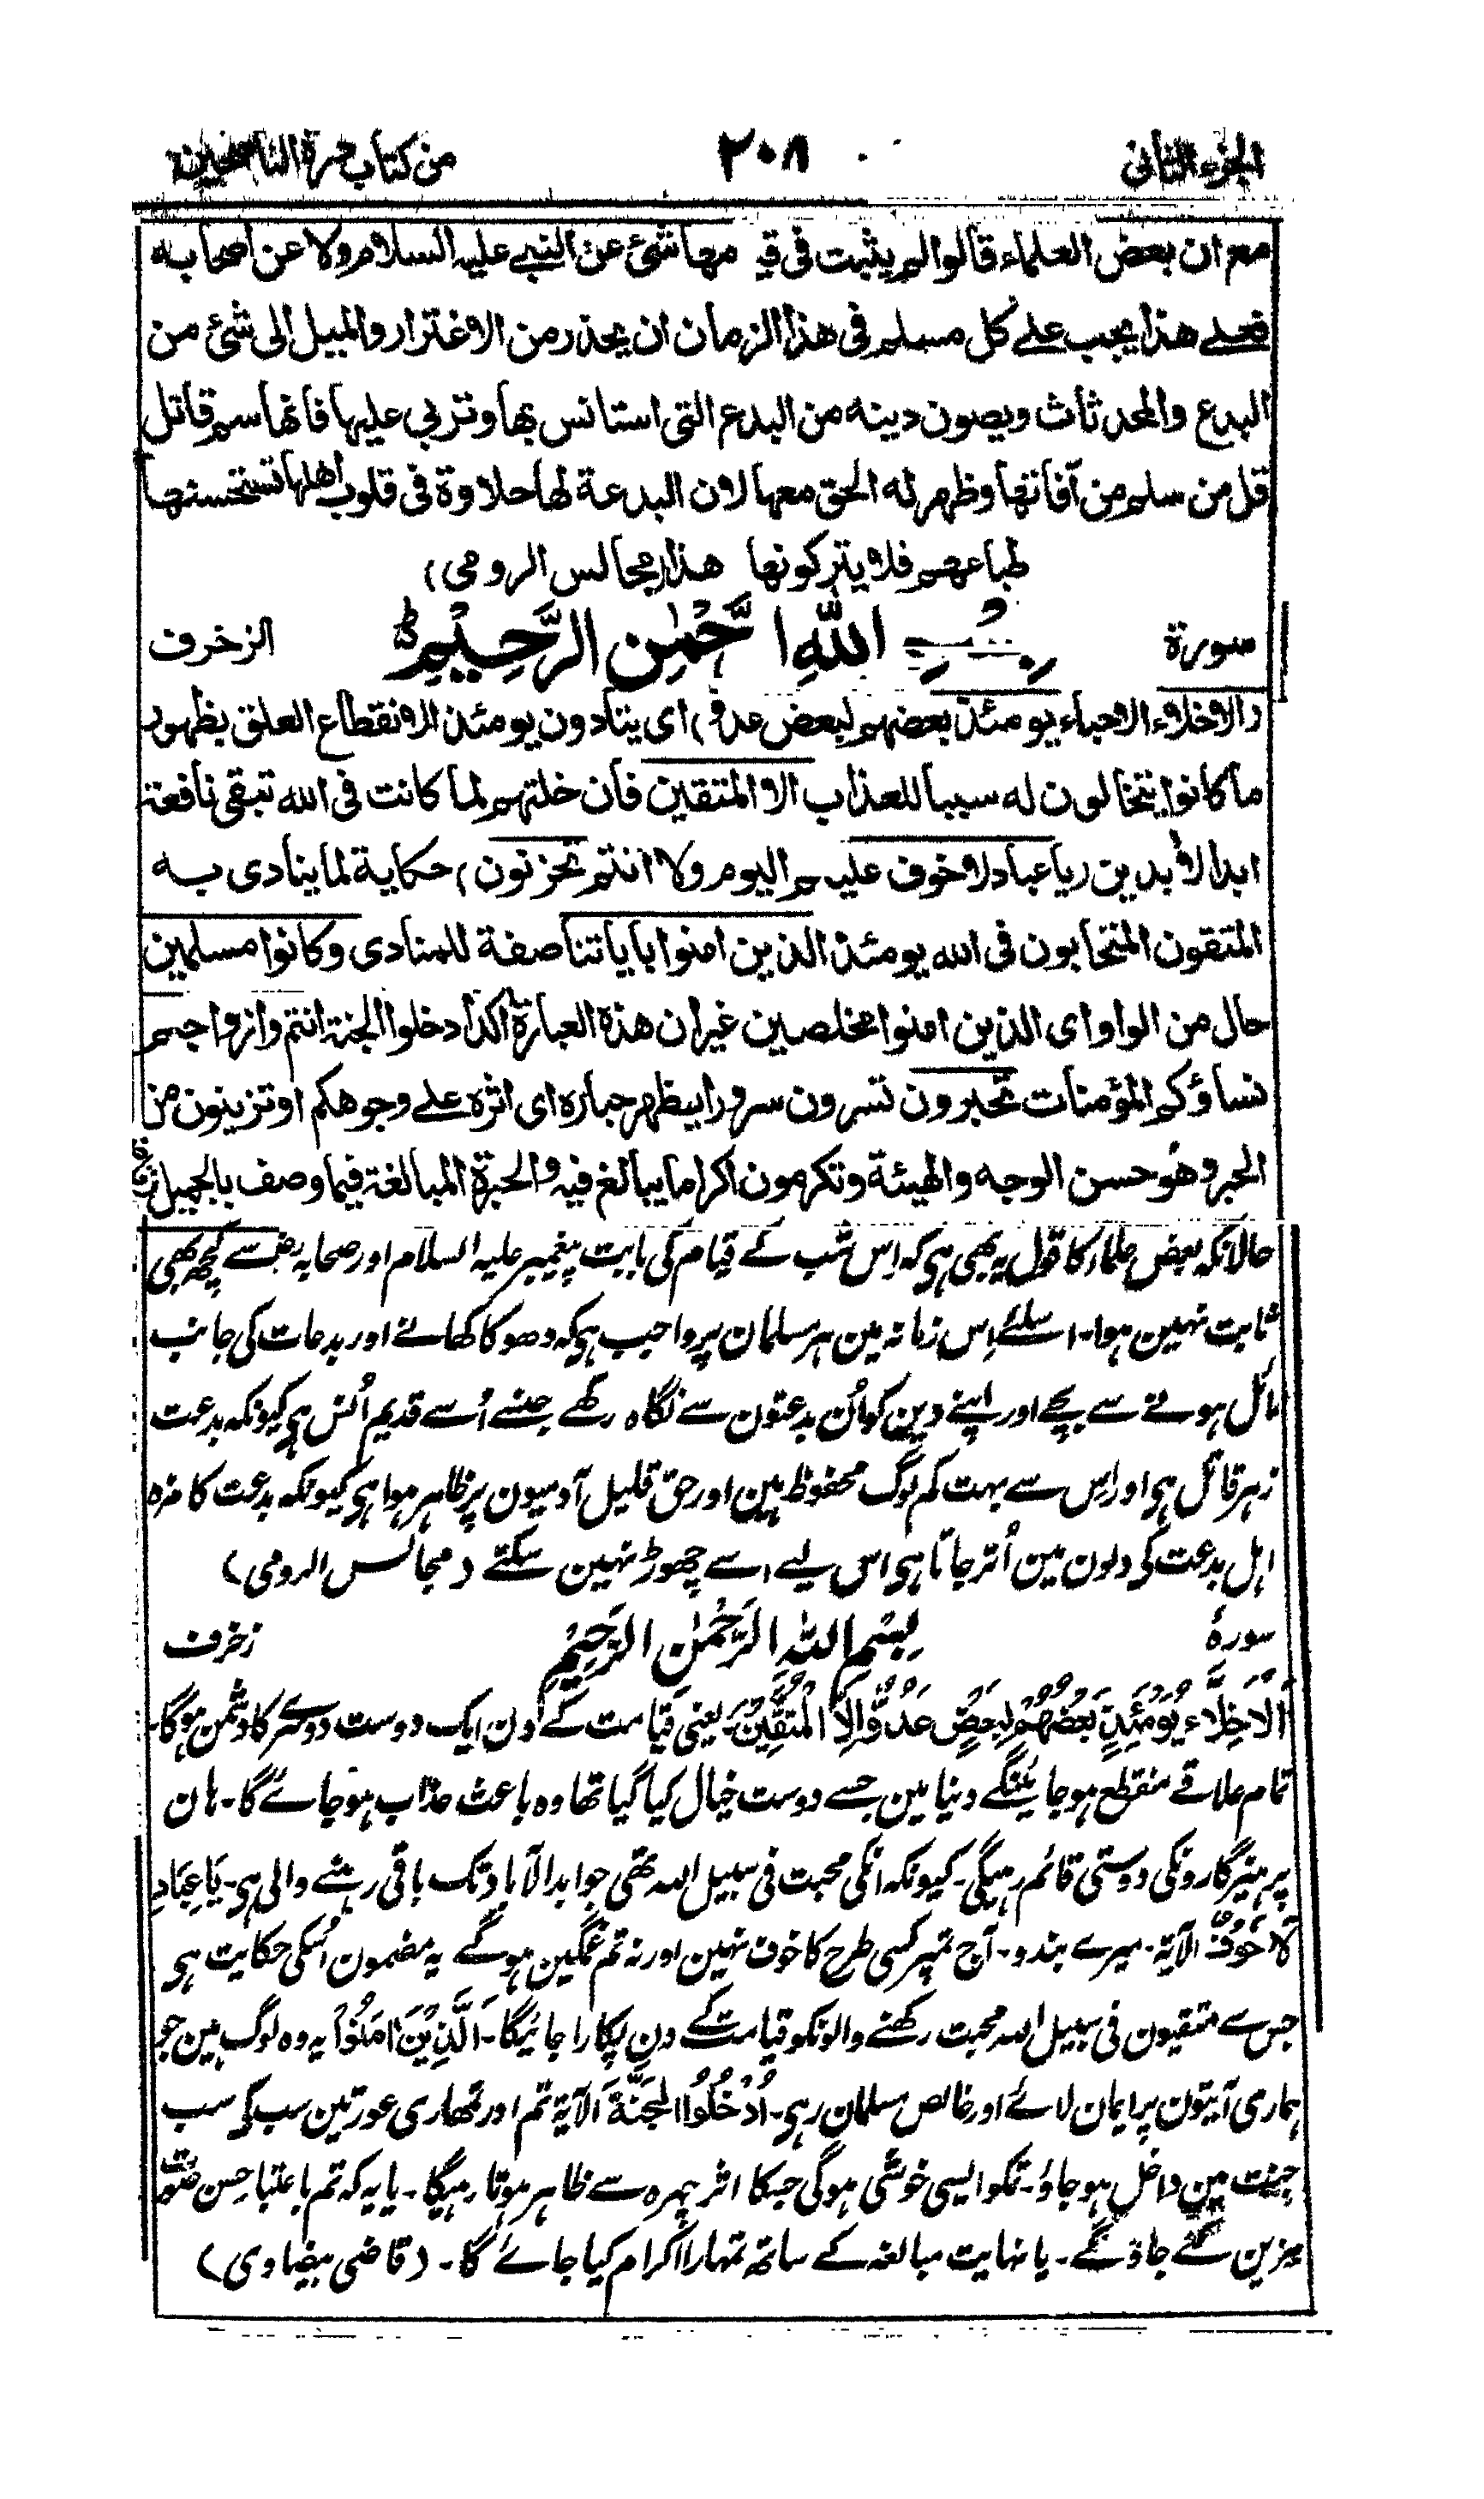 الجزء الثانى ٢٠٨ من كتاب درة الناصحين
مع ان بعض العلماء قالوا لم يثبت فى قيامها شئ عن النبى عليه السلام ولا عن اصحابه
فعلے هذا يجب علے كل مسلم فى هذا الزمان ان يحذر من الاغترار والميل الى شئ من
البدع والمحدثات ويصون دينه من البدع التى استانس بها وتربى عليها فانها سم قاتل
قل من سلم من آفاتها وظهر له الحق معها لان البدعة لها حلاوة فى قلوب اهلها تستحسنها
طباعهم فلا يتركونها هذا (مجالس الرومى)
سورة بسم الله الرَّحْمٰنِ الرَّحِيْمِ الزخرف
(الاخلاء الاحباء يومئذ بعضهم لبعض عدو) اى يتادون يومئذ لانقطاع العلق بظهور
ما كانوا يتخالون له سببا للعذاب الا المتقين فان خلتهم لما كانت فى الله تبقى نافعة
ابد الابدين (يا عباد لا خوف عليكم اليوم ولا انتم تحزنون) حكاية لما ينادى به
المتقون المتحابون فى الله يومئذ الذين امنوا بايا تنا صفة للمنادى وكانوا مسلمين
حال من الواو اى الذين امنوا مخلصين غير ان هذه العبارة اكد ادخلوا الجنة انتم وازواجكم
نساؤكم المؤمنات تحبرون تسرون سرورا يظهر حباره اى اثره علے وجوهكم او تزينون من
الحبر وهو حسن الوجه والهيئة وتكرمون اكراما يبالغ فيه والحبرة المبالغة فيما وصف بالجميل
حالانکہ بعض علماء کا قول یہ بھی ہی کہ اِس شب کے قیام کی بابت پیغمبر علیہ السلام اور صحابہ رض سے کچھ بھی
ثابت نہین ہوا۔ اسلئے اِس زمانہ مین ہر مسلمان پر واجب ہی کہ دھوکا کھانے اور بدعات کی جانب
مائل ہونے سے بچے اور اپنے دین کو اُن بدعتون سے نگاہ رکھے جنسے اُسے قدیم اُنس ہی کیونکہ بدعت
زہر قاتل ہی اور اِس سے بہت کم لوگ محفوظ ہین اور حق قلیل آدمیون پر ظاہر ہوا ہی کیونکہ بدعت کا مزہ
اہل بدعت کی دلون مین اُتر جاتا ہی اس لیے اسے چھوڑ نہین سکتے (مجالس الرومی)
سورۂ بِسْمِ اللهِ الرَّحْمٰنِ الرَّحِيْمِ زخرف
اَلْاَخِلَّاءُ يَوْمَئِذٍ بَعْضُهُمْ لِبَعْضٍ عَدُوٌّ اِلَّا الْمُتَّقِيْنَ۔ یعنی قیامت کے دن ایک دوست دوسرے کا دشمن ہوگا۔
تمام علاقے منقطع ہوجاینگے دنیا مین جسے دوست خیال کیا گیا تھا وہ باعث عذاب ہوجائے گا۔ ہان
پرہیزگارونکی دوستی قائم رہیگی۔ کیونکہ انکی محبت فی سبیل اللہ تھی جو ابدالآباد تک باقی رہنے والی ہی۔ يَا عِبَادِ
لَا خَوْفٌ الآیۃ۔ میرے بندو۔ آج تمپر کسی طرح کا خوف نہین اور نہ تم غمگین ہوگے یہ مضمون اُسکی حکایت ہی
جس سے متقیون فی سبیل اللہ محبت رکھنے والونکو قیامت کے دن پکارا جائیگا۔ اَلَّذِيْنَ اٰمَنُوْا یہ وہ لوگ ہین جو
ہماری آیتون پر ایمان لائے اور خالص مسلمان رہی۔ اُدْخُلُوا الْجَنَّةَ الآیۃ تم اور تمھاری عورتین سب کی سب
جنت مین داخل ہوجاؤ۔ تمکو ایسی خوشی ہوگی جسکا اثر چہرہ سے ظاہر ہوتا رہیگا۔ یا یہ کہ تم باعتبار حسن صورت
مزین کئے جاؤگے۔ یا نہایت مبالغہ کے ساتھ تمہارا اکرام کیا جائے گا۔ (قاضی بیضاوی)